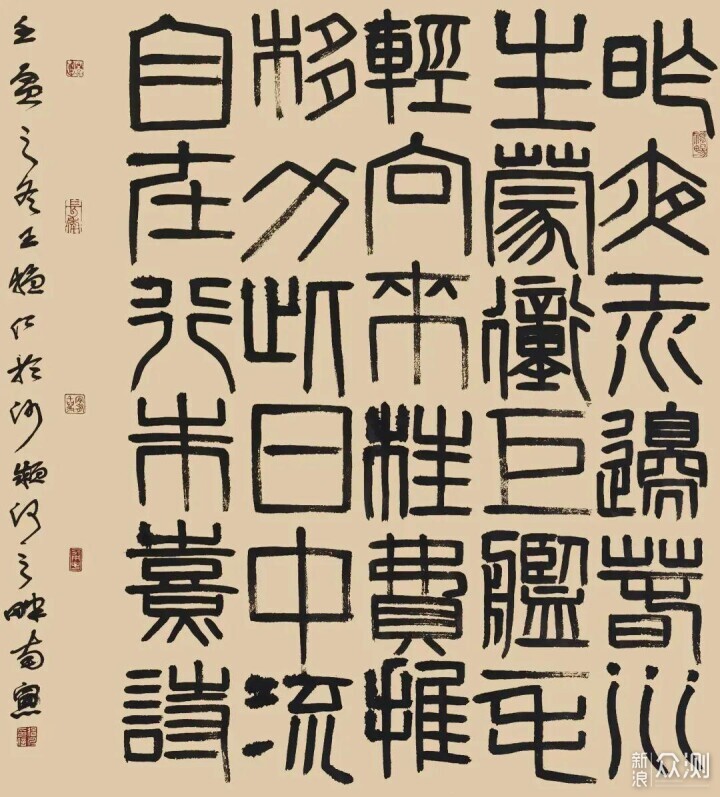 昨夜江邊春水
生蒙衝巨艦一毛
輕向來枉費推
移力此日中流
自在行朱熹詩
之冬王仁於沙潁河之畔南窗
新浪众测